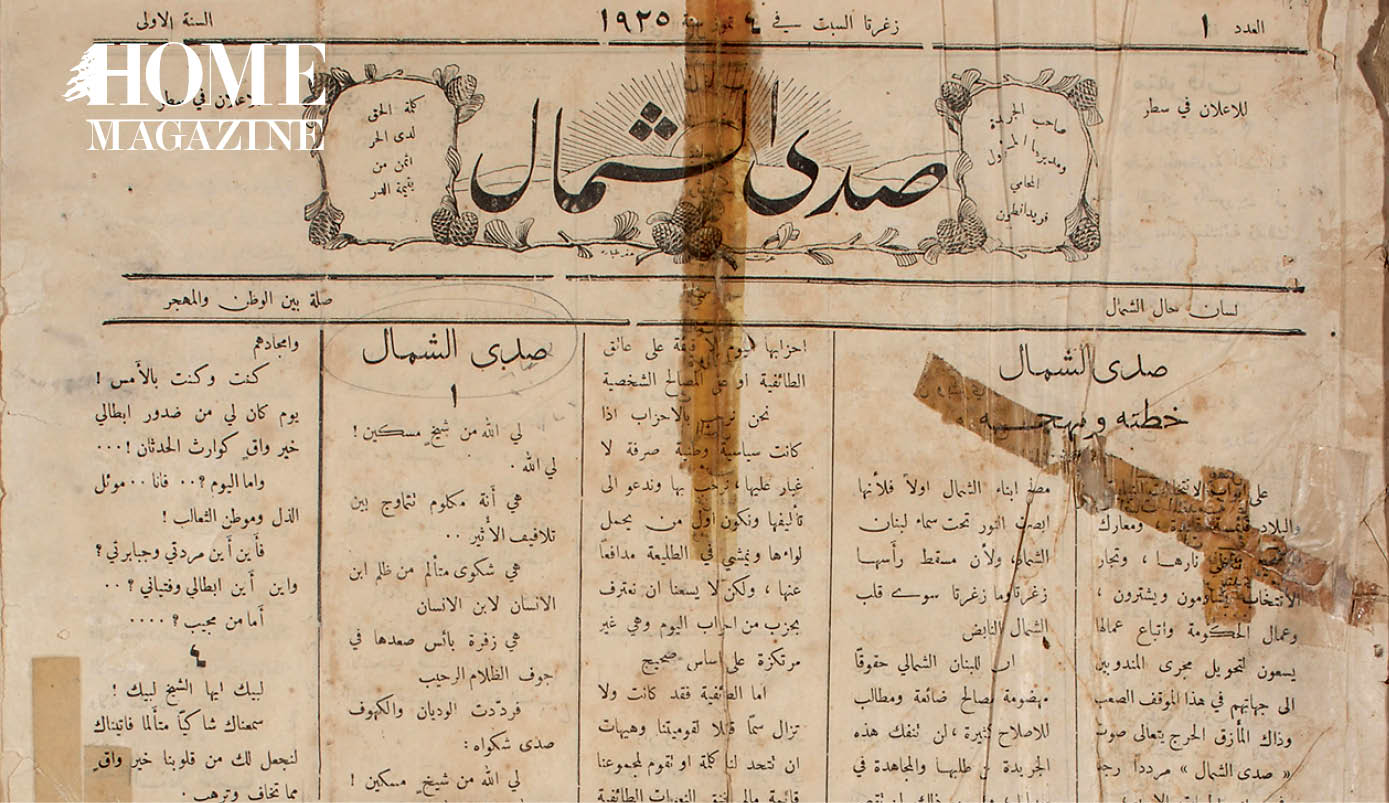 HOME
MAGAZINE
العدد ١
زغرتا السبت في ٤ تموز سنة ١٩٢٥
السنة الاولى
للاعلان في سطر
صاحب الجريدة
ومديرها
المحامي
فريد انطون
صدى الشمال
كلمة الحق
لدى الحر
اثمن من
يتيمة الدر
للاعلان في سطر
لسان حال الشمال
صلة بين الوطن والمهجر
صدى الشمال
خطته ومنهجه
على ابواب الانتخابات
والبلاد ومعارك
نارها ، وتجار
الانتخاب يساومون ويشترون ،
وعمال الحكومة واتباع عمالها
يسعون لتحويل مجرى المندوبين
الى جهاتهم في هذا الموقف الصعب
وذاك المأزق الحرج يتعالى صوت
« صدى الشمال » مردداً
ابناء الشمال اولاً فلأنها
ابصرت النور تحت سماء لبنان
الشمالي ولأن مسقط رأسها
زغرتا وما زغرتا سوى قلب
الشمال النابض
ان للبنان الشمالي حقوقاً
مهضومة ومصالح ضائعة ومطالب
للاصلاح كثيرة ، لن تنفك هذه
الجريدة عن طلبها والمجاهدة في
احزابها اليوم على عاتق
الطائفية او على المصالح الشخصية
نحن نرحب بالاحزاب اذا
كانت سياسية وطنية صرفة لا
غبار عليها ، نرحب بها وندعو الى
تأليفها ونكون اول من يحمل
لواءها ويمشي في الطليعة مدافعاً
عنها ، ولكن لا يسعنا ان نعترف
بحزب من احزاب اليوم وهي غير
مرتكزة على اساس صحيح
اما الطائفية فقد كانت ولا
تزال سماً قتالا لقوميتنا وهيهات
ان تتحد لنا كلمة او تقوم لمجموعنا
قائمة مالم النعرات الطائفية
صدى الشمال
١
لي الله من شيخ مسكين !
لي الله .
هي أنة مكلوم تتماوج بين
تلافيف الأثير ..
هي شكوى متألم من ظلم ابن
الانسان لابن الانسان
هي زفرة بائس صعدها في
جوف الظلام الرحيب
فردّدت الوديان والكهوف
صدى شكواه :
لي الله من شيخ مسكين !
وامجادهم
كنت وكنت بالأمس !
يوم كان لي من صدور ابطالي
خير واق كوارث الحدثان !...
واما اليوم ؟.. فانا .. موئل
الذل وموطن الثعالب !
فأين أين مردتي وجبابرتي ؟
واين أين ابطالي وفتياني ؟ ..
أما من مجيب ؟ ....
٤
لبيك ايها الشيخ لبيك !
سمعناك شاكيّا متألما فاتيناك
لنجعل لك من قلوبنا خير واقٍ
مما تخاف وترهب .